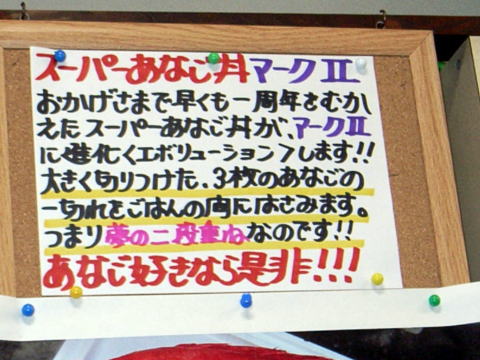 スーパーあなご丼マークⅡ
おかげさまで早くも一周年をむか
えたスーパーあなご丼が、マークⅡ
に進化くエボリューション〉します!!
大きく切りつけた、3枚のあなごの
一切れをごはんの間にはさみます。
つまり夢の二段重ねなのです!!
あなご好きなら是非!!!